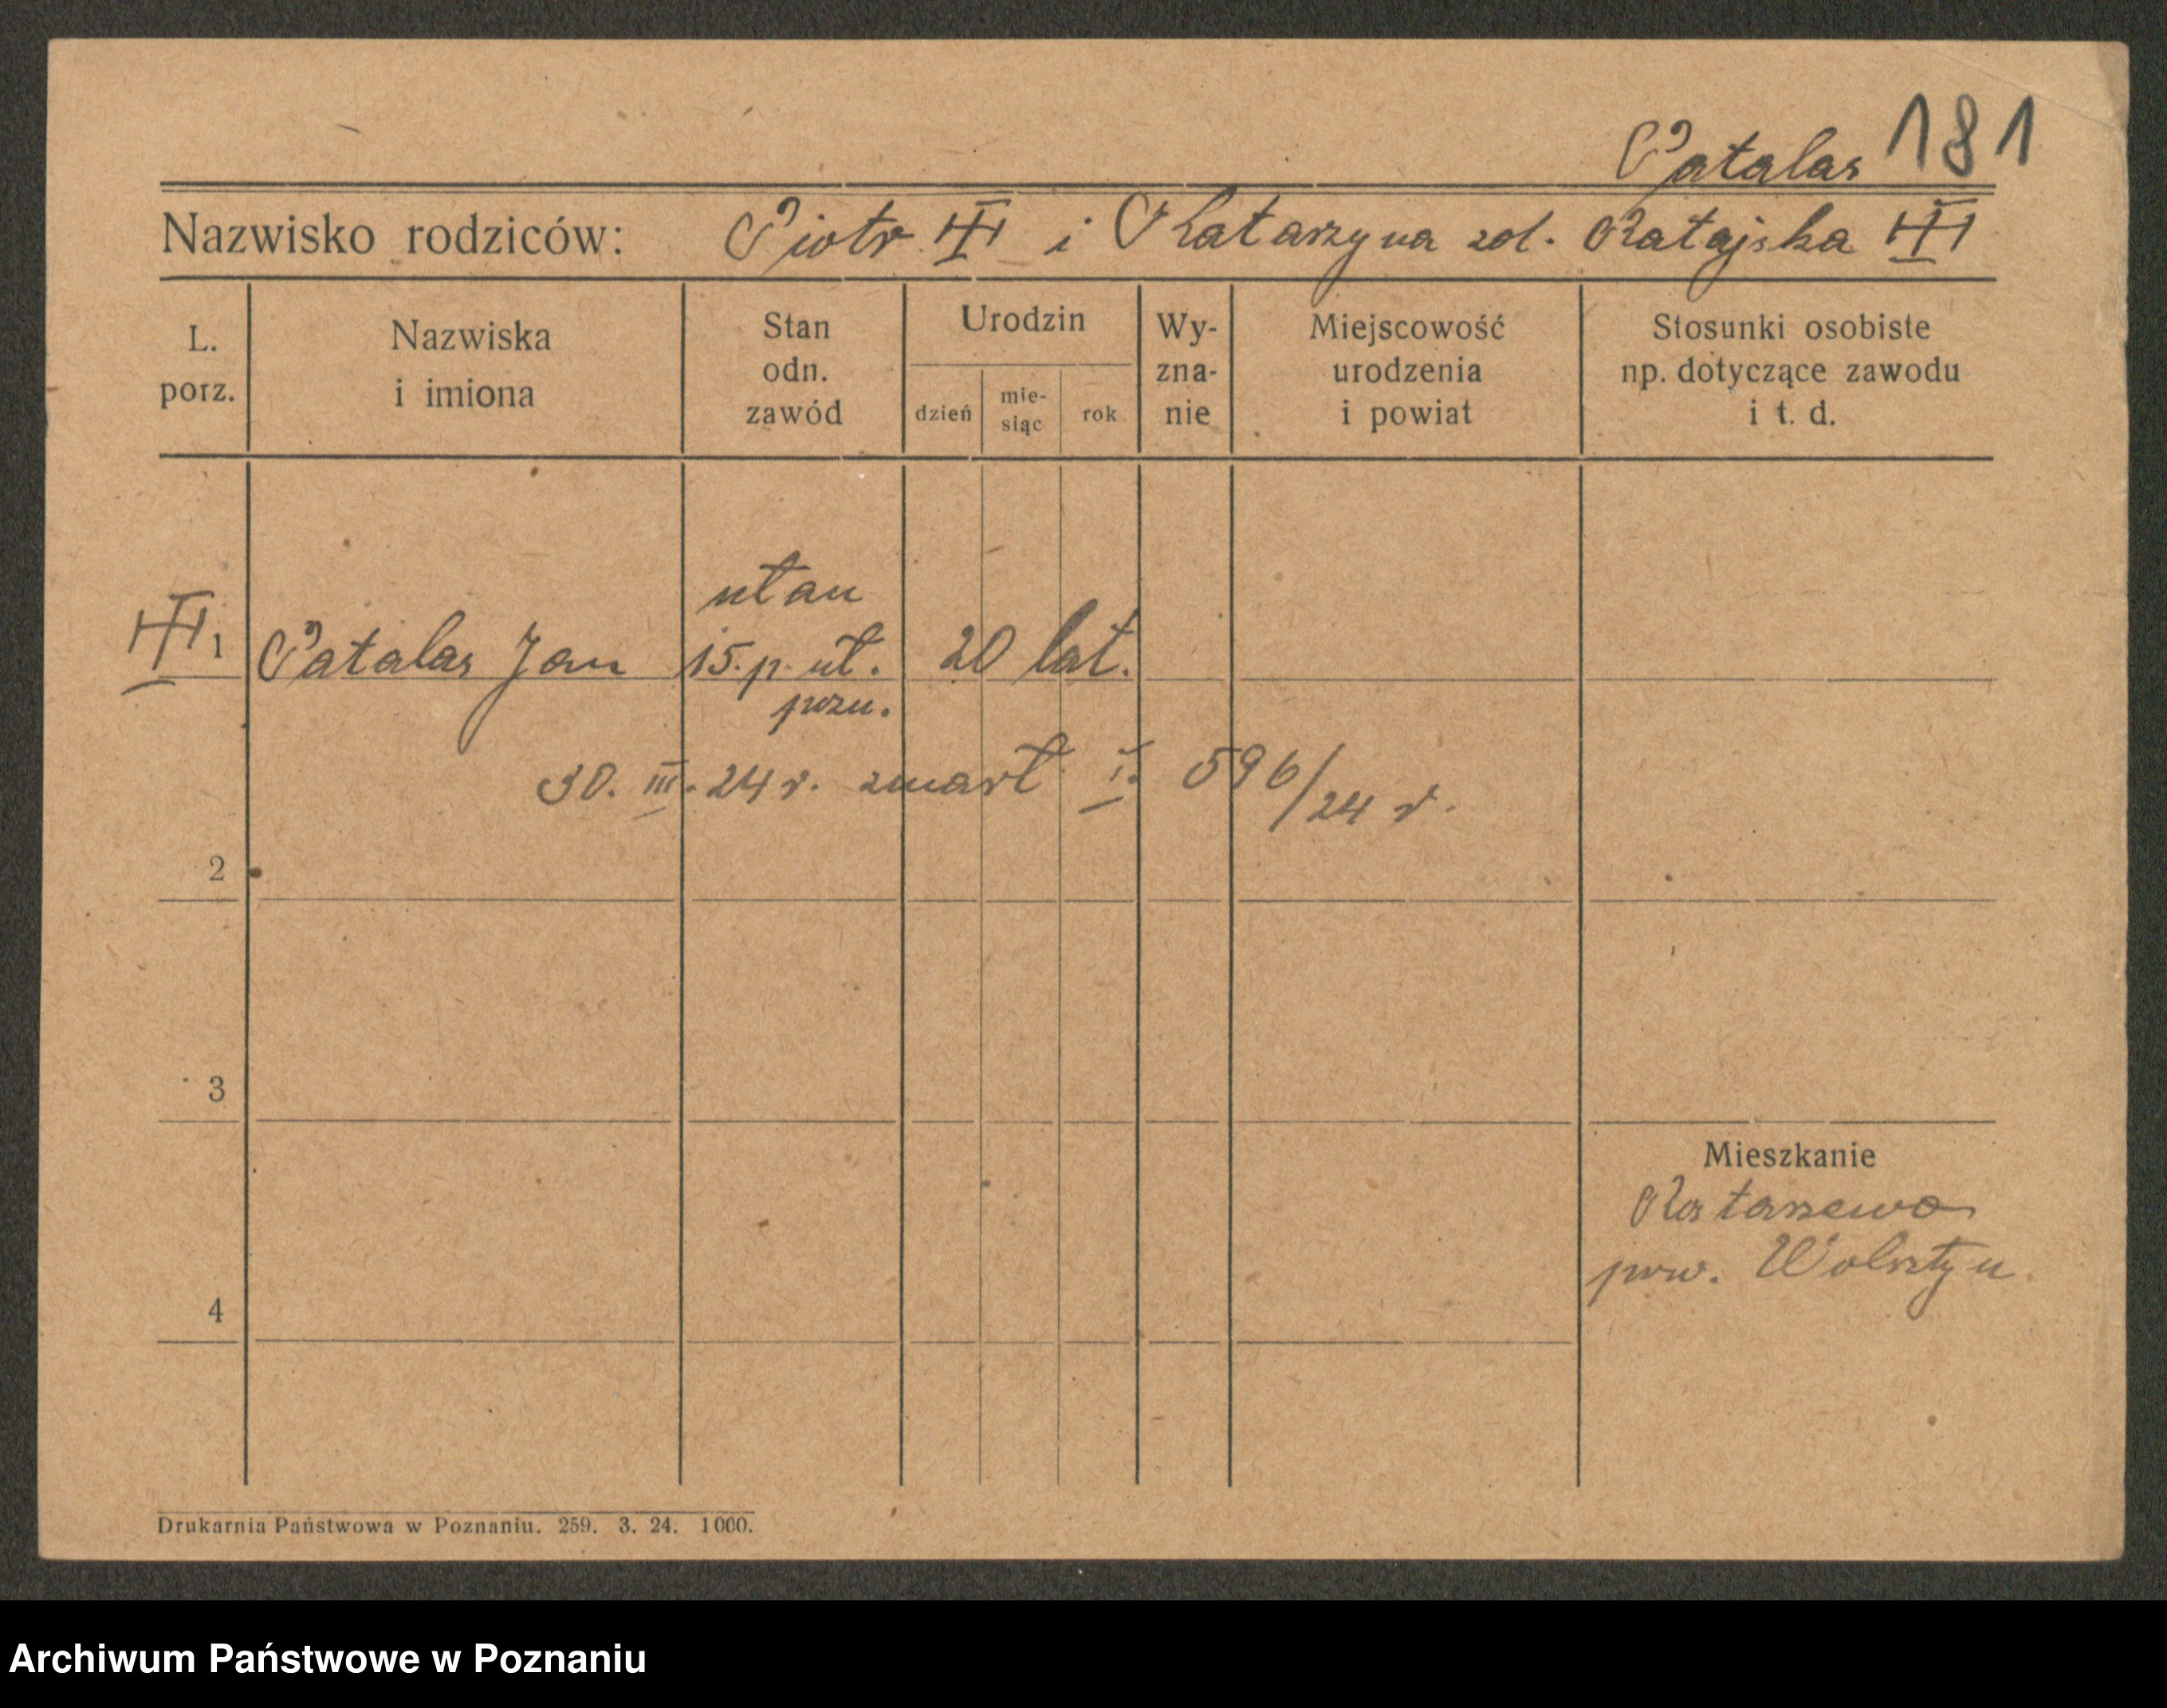 Patalas 181
Nazwisko rodziców: Piotr i Katarzyna zd. Ratajska
L. porz.
Nazwiska i imiona
Stan odn. zawód
Urodzin
dzień
mie-
siąc
rok
Wy-
zna-
nie
Miejscowość
urodzenia
i powiat
Stosunki osobiste
np. dotyczące zawodu
i t. d.
ułan
1 Patalas Jan 15. p. uł. 20 lat.
pozn.
30. III. 24 r. zmarł 596/24 r.
2
3
Mieszkanie
pow. Wolsztyn
4
Drukarnia Państwowa w Poznaniu. 259. 3. 24. 1000.
Archiwum Państwowe w Poznaniu